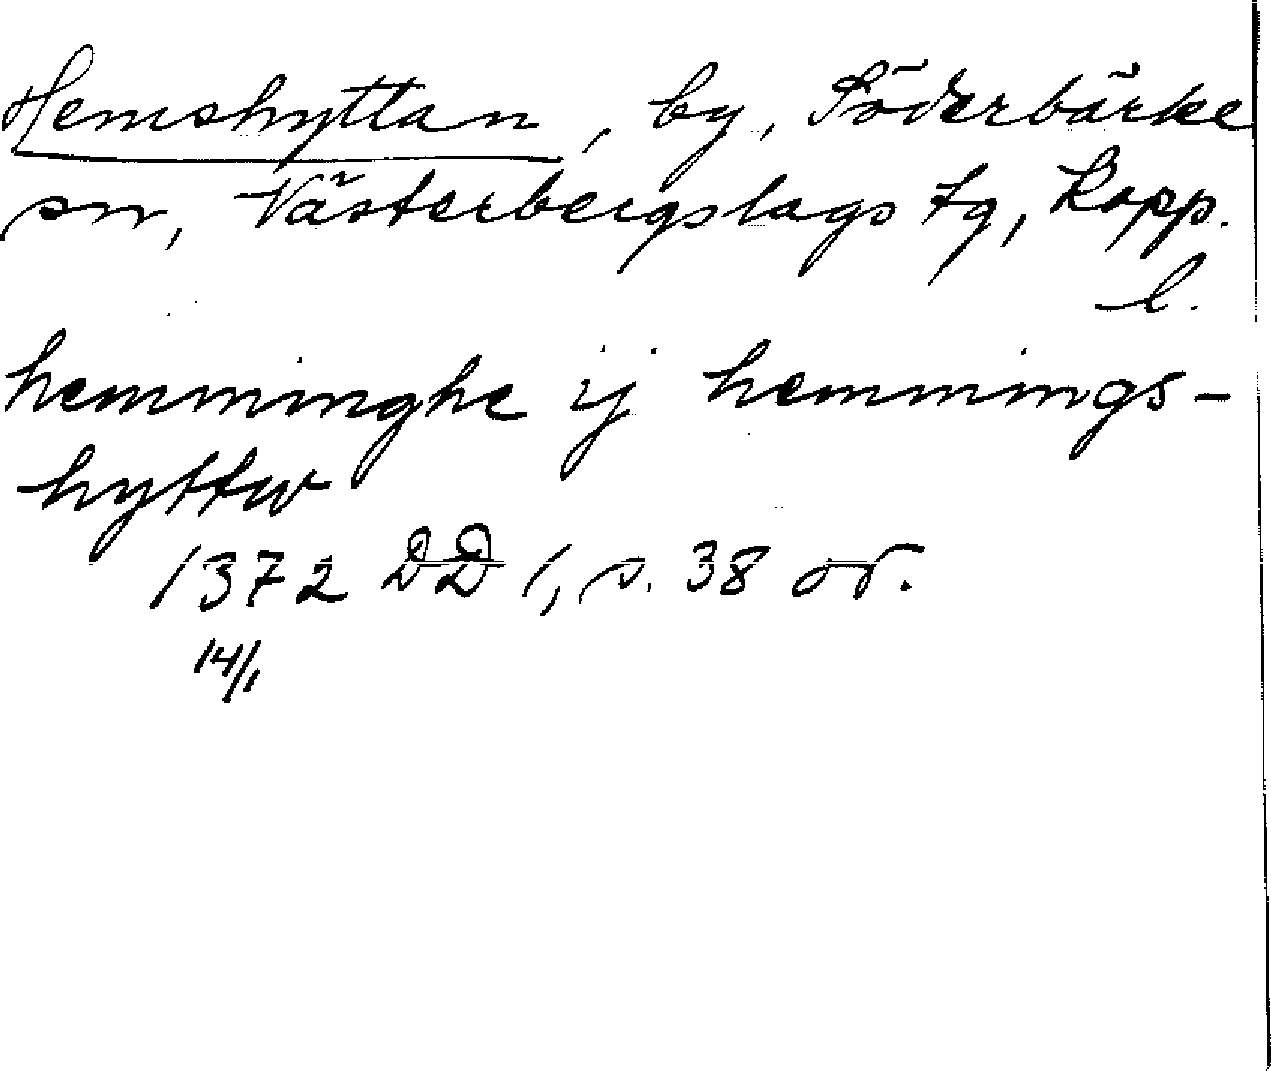 Hemshyttan, by, Söderbärke
sn, Västerbergslags tg, Kopp.
l.
hemminghe ij hemmings-
hyttw
1372 DD 1, s. 38 or.
14/1